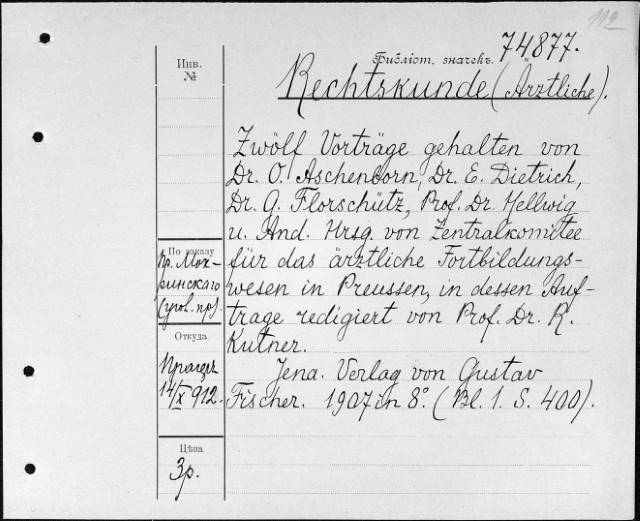 112
Библіот. значекъ.
74877.
Инв.
№
Rechtskunde (Ärztliche).
Zwölf Vorträge gehalten von
Dr. O. Aschenborn, Dr. E. Dietrich,
Dr. G. Florschütz, Prof. Dr. Hellwig
u. And. Hrsg. von Zentralkomitee
für das ärztliche Fortbildungs-
wesen in Preussen, in dessen Auf-
trage redigiert von Prof. Dr. R.
Kutner.
Jena. Verlag von Gustav
Fischer. 1907 in 8° (Bl. 1. S. 400).
По заказу
пр. Мок-
ринскаго
Откуда
14/IX 912.
Цѣна
3р.